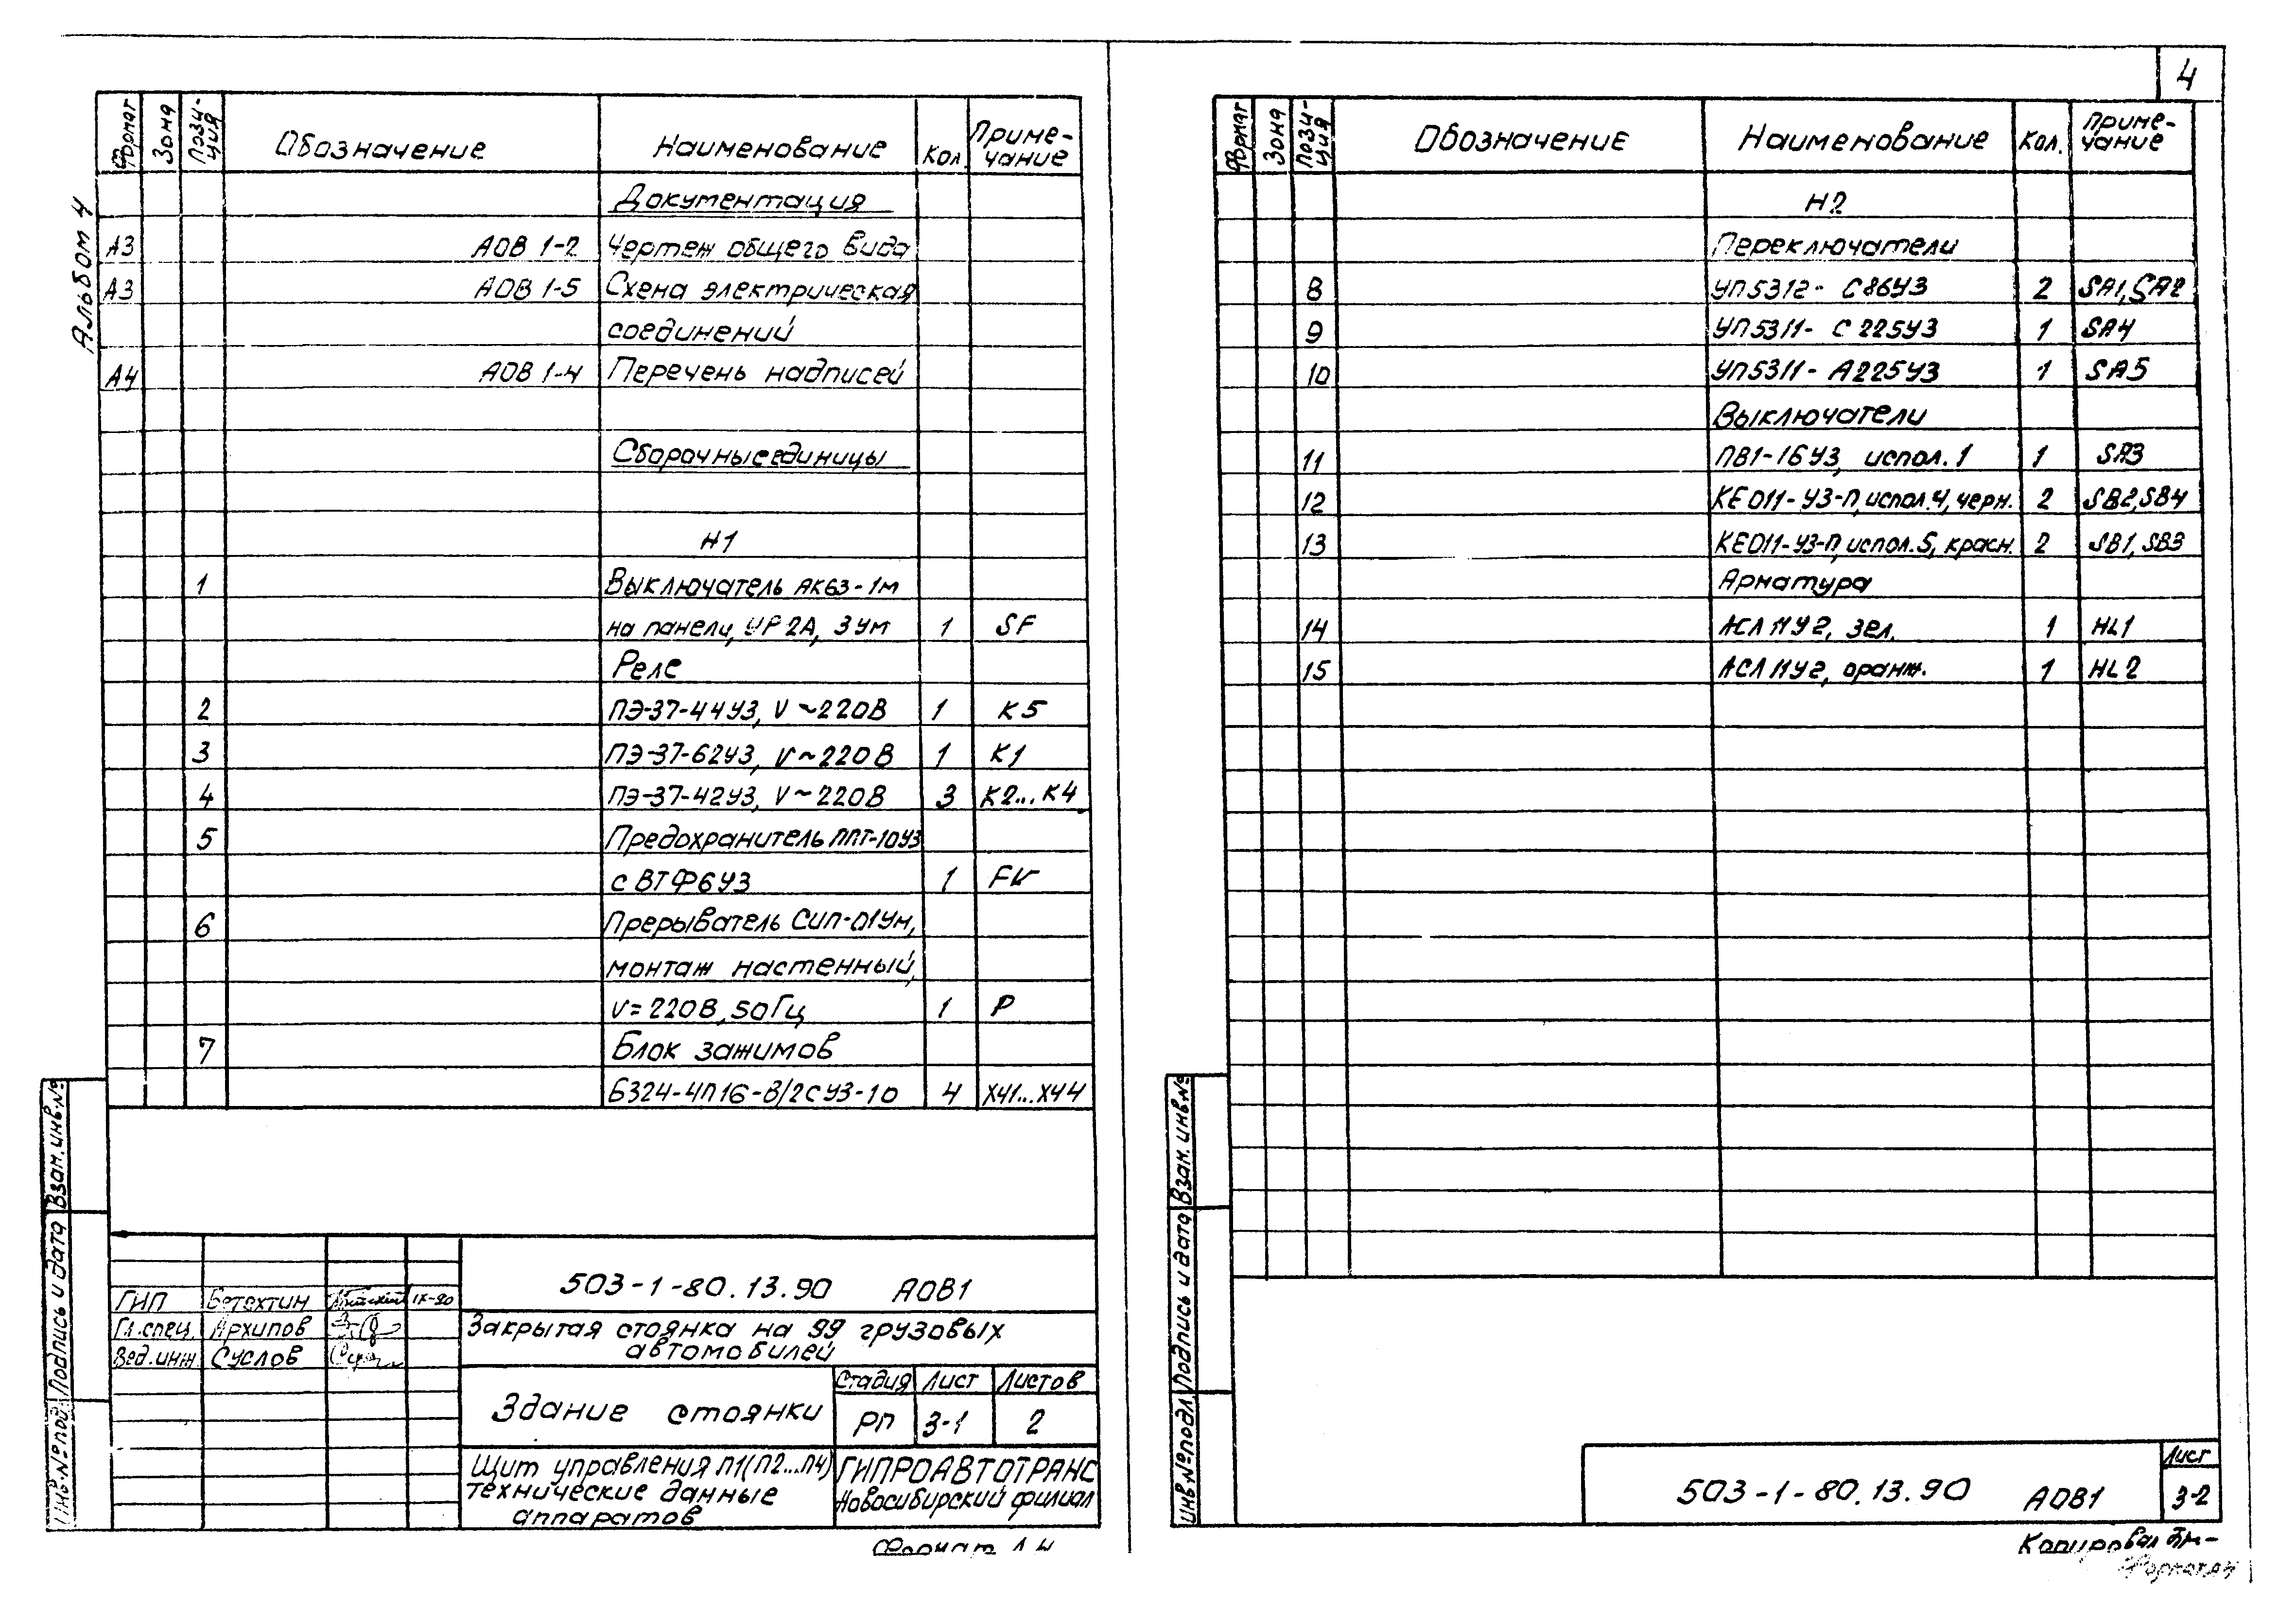 4
Альбом 4
Формат Зона Пози-ция Обозначение Наименование Кол. Приме-чание
Документация
А3 АОВ 1-2 Чертеж общего вида
А3 АОВ 1-5 Схема электрическая
соединений
А4 АОВ 1-4 Перечень надписей
Сборочные единицы
Н1
1 Выключатель АК63-1м
на панели, УР 2А, 3УМ 1 SF
Реле
2 ПЭ-37-44У3, V~220В 1 К5
3 ПЭ-37-62У3, V~220В 1 К1
4 ПЭ-37-42У3, V~220В 3 К2...К4
5 Предохранитель ППТ-10У3
с ВТФ6У3 1 FV
6 Прерыватель СИП-01УМ,
монтаж настенный,
V=220В, 50Гц 1 Р
7 Блок зажимов
Б324-4П16-В/2СУ3-10 4 Х41...Х44
Взам.инв.№
Подпись и дата
Инв.№ подл
503-1-80.13.90 АОВ1
ГИП Бетехтин
Гл.спец. Архипов
Вед.инж. Суслов
Закрытая стоянка на 99 грузовых
автомобилей
Здание стоянки
Стадия Лист Листов
РП 3-1 2
Щит управления П1(П2...П4)
технические данные
аппаратов
ГИПРОАВТОТРАНС
Новосибирский филиал
Формат А4
Формат Зона Пози-ция Обозначение Наименование Кол. Приме-чание
Н2
Переключатели
8 УП5312- С86У3 2 SA1, SA2
9 УП5311- С225У3 1 SA4
10 УП5311- А225У3 1 SA5
Выключатели
11 ПВ1-16У3, испол.1 1 SA3
12 КЕ011-У3-П, испол.4, черн. 2 SB2, SB4
13 КЕ011-У3-П, испол.5, красн. 2 SB1, SB3
Арматура
14 АСЛ11У2, зел. 1 HL1
15 АСЛ11У2, оранж. 1 HL2
Взам.инв.№
Подпись и дата
Инв.№ подл.
503-1-80.13.90 АОВ1
Лист
3-2
Копировал
Формат А4